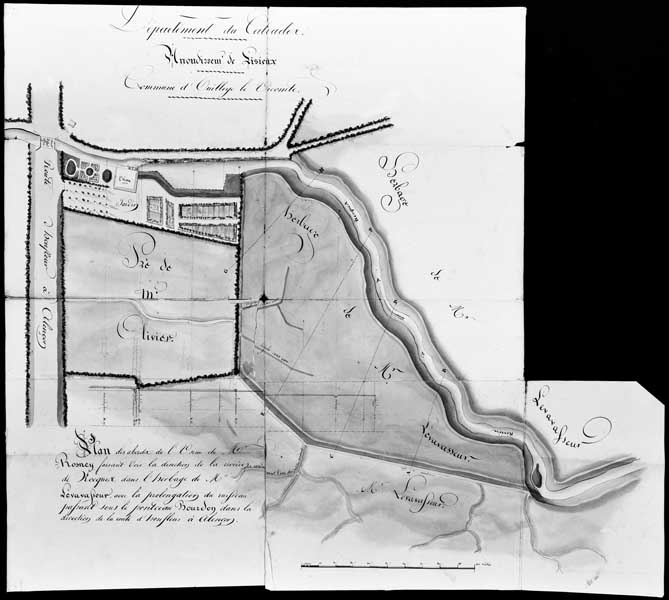 Département du Calvados.
Arrondissemt de Lisieux
Commune d'Ouillye le Vicomte.
Route d'honfleur à Alençon
Jardin
Pré de
Mr
Olivier.
herbage
de
Mr
Levavasseur
Herbage
de
Mr
Levavasseur
Mr Levavasseur
Plan des abords de l'Usine de Mr
Rosney faisant voir la direction de la rivière
de dans l'herbage de Mr
Levavasseur, avec la prolongation du ruisseau
passant sous le ponceau Bourdon dans la
direction de la route d'honfleur à Alençon.